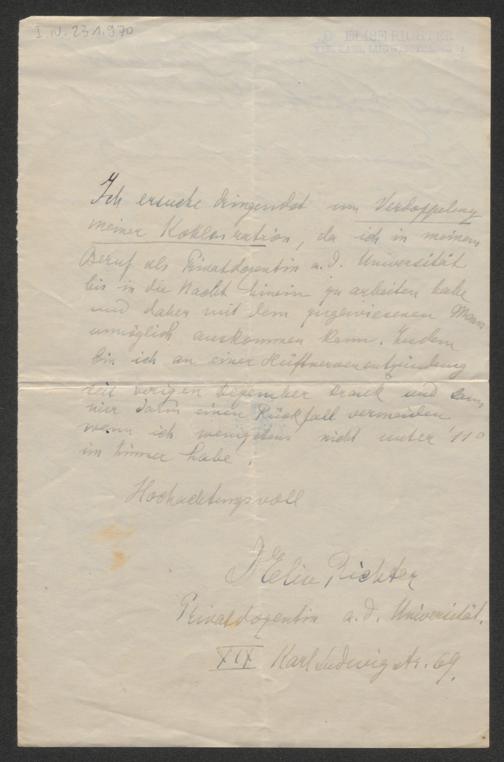 I.N. 231.970
Dr. ELISE RICHTER
XIX. KARL LUDWIGSTRASSE
Ich ersuche dringendst um Verdoppelung
meiner Kohlenration, da ich in meinem
Beruf als Privatdozentin a. d. Universität
bis in die Nacht hinein zu arbeiten habe
und daher mit dem zugewiesenen
unmöglich auskommen kann. Zudem
bin ich an einer Hüftnervenentzündung
seit vorigen Dezember krank und kann
nur dann einen Rückfall vermeiden
wenn ich wenigstens nicht unter 11°
im Zimmer habe.
Hochachtungsvoll
Dr Elise Richter
Privatdozentin a. d. Universität.
XIX Karl Ludwigstr. 69.